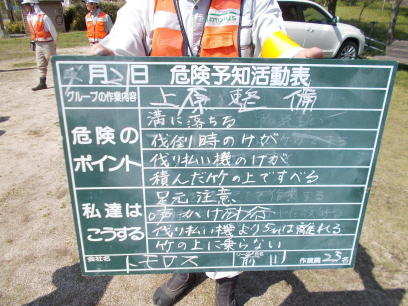 月21日 危険予知活動表
グループの作業内容 上原整備
危険の
ポイント
溝に落ちる
伐倒時のけが
伐り払い機のけが
積んだ竹の上ですべる
私達は
こうする
足元注意
声かけ
伐り払い機より5m離れる
竹の上に乗らない
会社名 トモロス
リーダー名 前川
作業員 23名